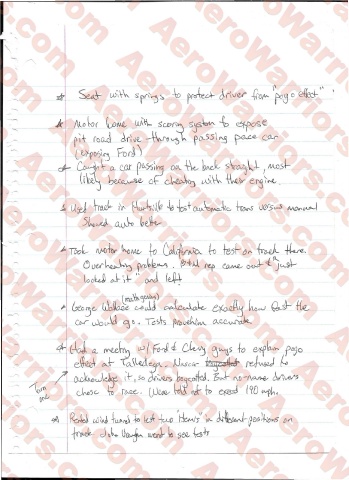 * Seat with springs to protect driver from "pogo effect"
* Motor home with scoring system to expose
pit road drive-through passing pace car
(exposing Ford)
* Caught a car passing on the back straight, most
likely because of cheating with their engine.
* Used track in Huntsville to test automatic trans versus manual
Showed auto better
* Took motor home to California to test on track there.
Overheating problems. rep came out & "just
looked at it" and left
(math genius)
* George Wallace could calculate exactly how fast the
car would go. Tests proved him accurate.
* Had a meeting w/ Ford & Chevy guys to explain pogo
effect at Talladega. Nascar refused to
acknowledge it, so drivers boycotted. But no-name drivers
chose to race. (Were told not to exceed 190 mph.
Turn
one
* Rented wind tunnel to test two Hemis in different positions on
track. John went to see tests
AeroWarriors.com